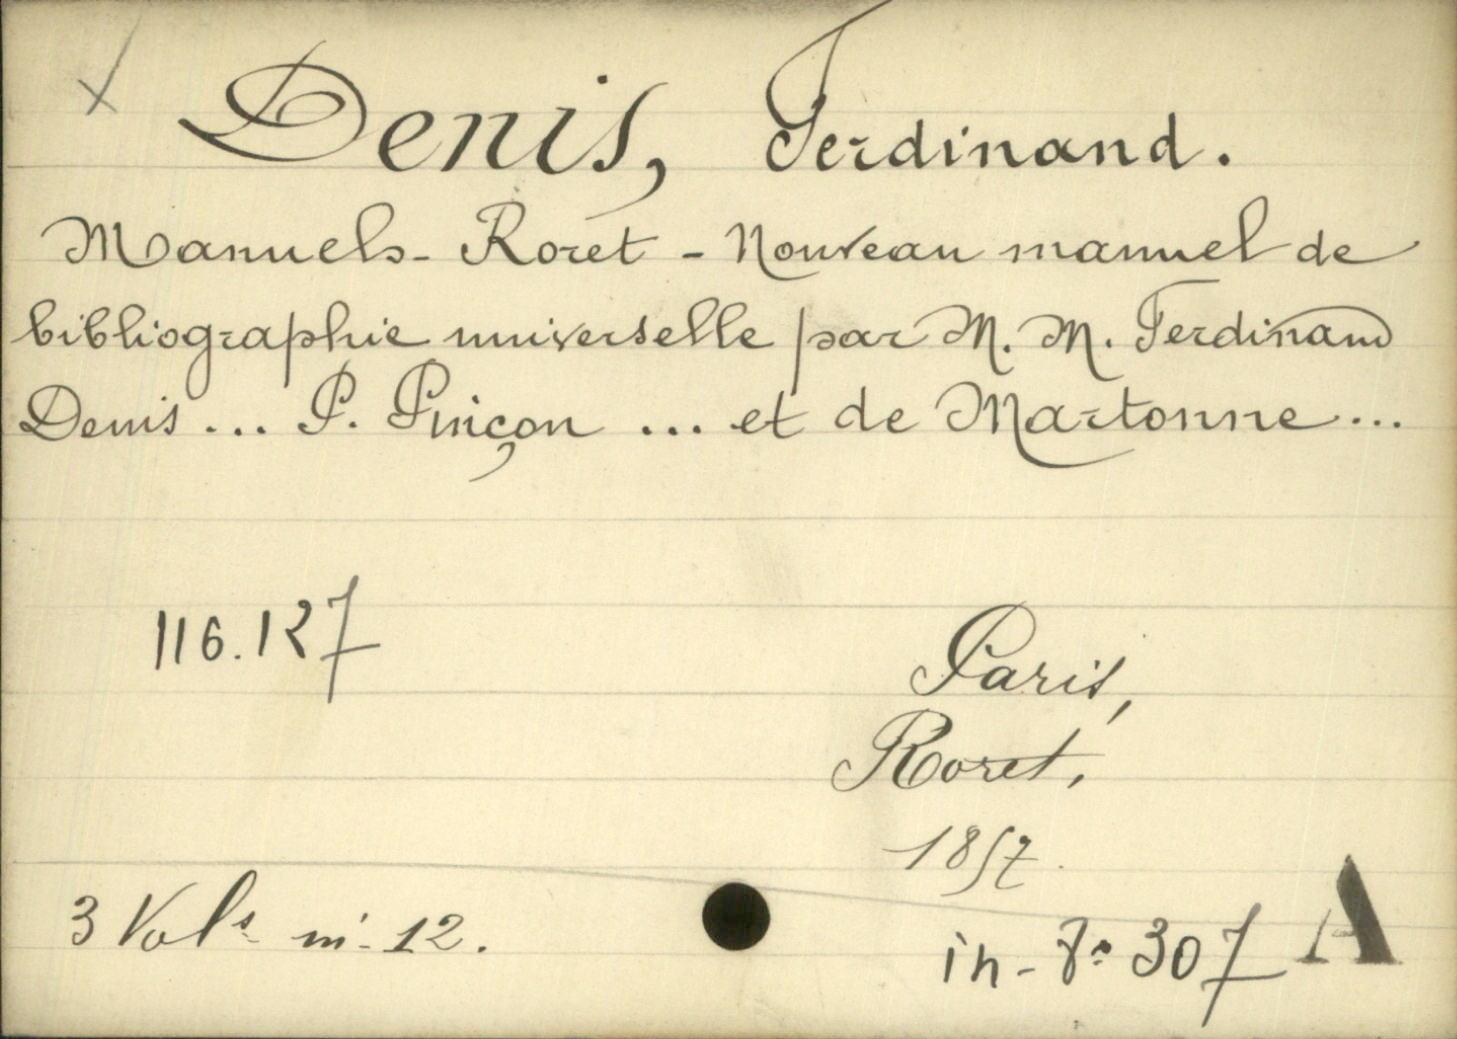 Denis, Ferdinand.
Manuels-Roret - Nouveau manuel de
bibliographie universelle par M. M. Ferdinand
Denis ... P. Pinçon ... et de Martonne ...
116.127
Paris,
Roret,
1857.
3 Vols in-12.
in-8° 307 A